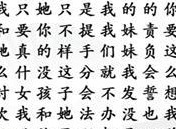 我只她只是我的的你
和要你不提我妹责要
她真的样手们妹负这
么什没这分就我会么
对女孩子会不发誓想
次我和她法办没也我